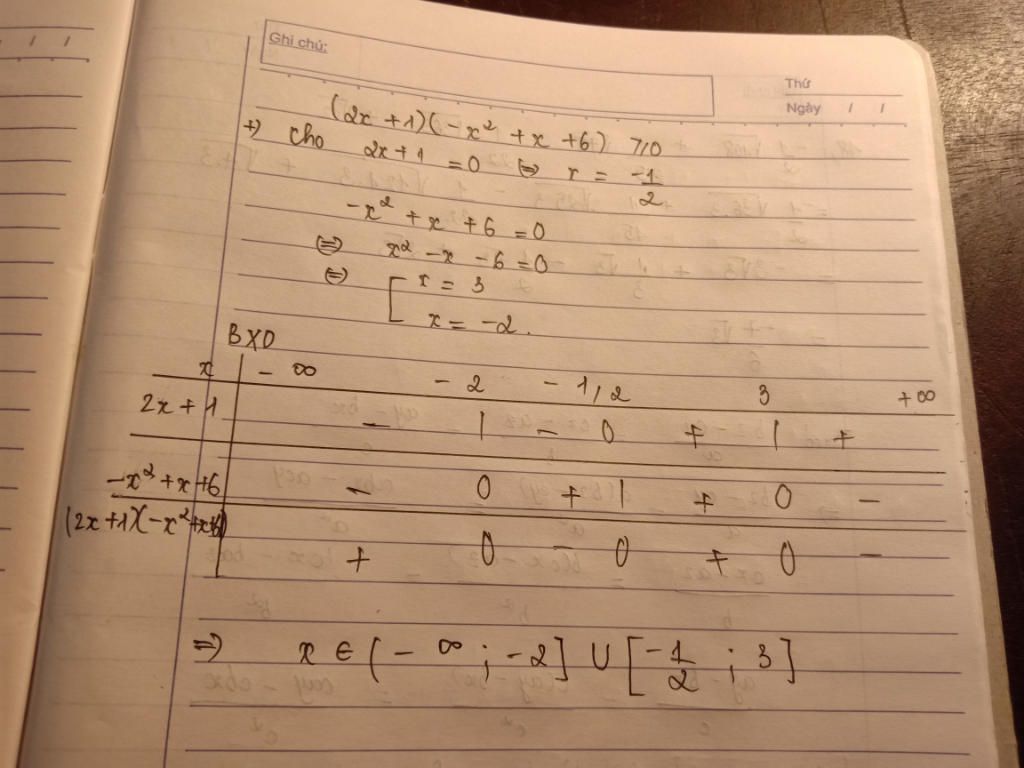 Ghi chú:
Thứ
Ngày / /
(2x + 1)(-x² + x + 6) ≥ 0
+) Cho 2x + 1 = 0 ⇔ x = -1/2
-x² + x + 6 = 0
⇔ x² - x - 6 = 0
⇔ [ x = 3
x = -2.
BXD
x | -∞ -2 -1/2 3 +∞
2x + 1 | - | - 0 + | +
-x² + x + 6 | - 0 + | + 0 -
(2x + 1)(-x² + x + 6) | + 0 - 0 + 0 -
⇒ x ∈ (-∞ ; -2] ∪ [-1/2 ; 3]